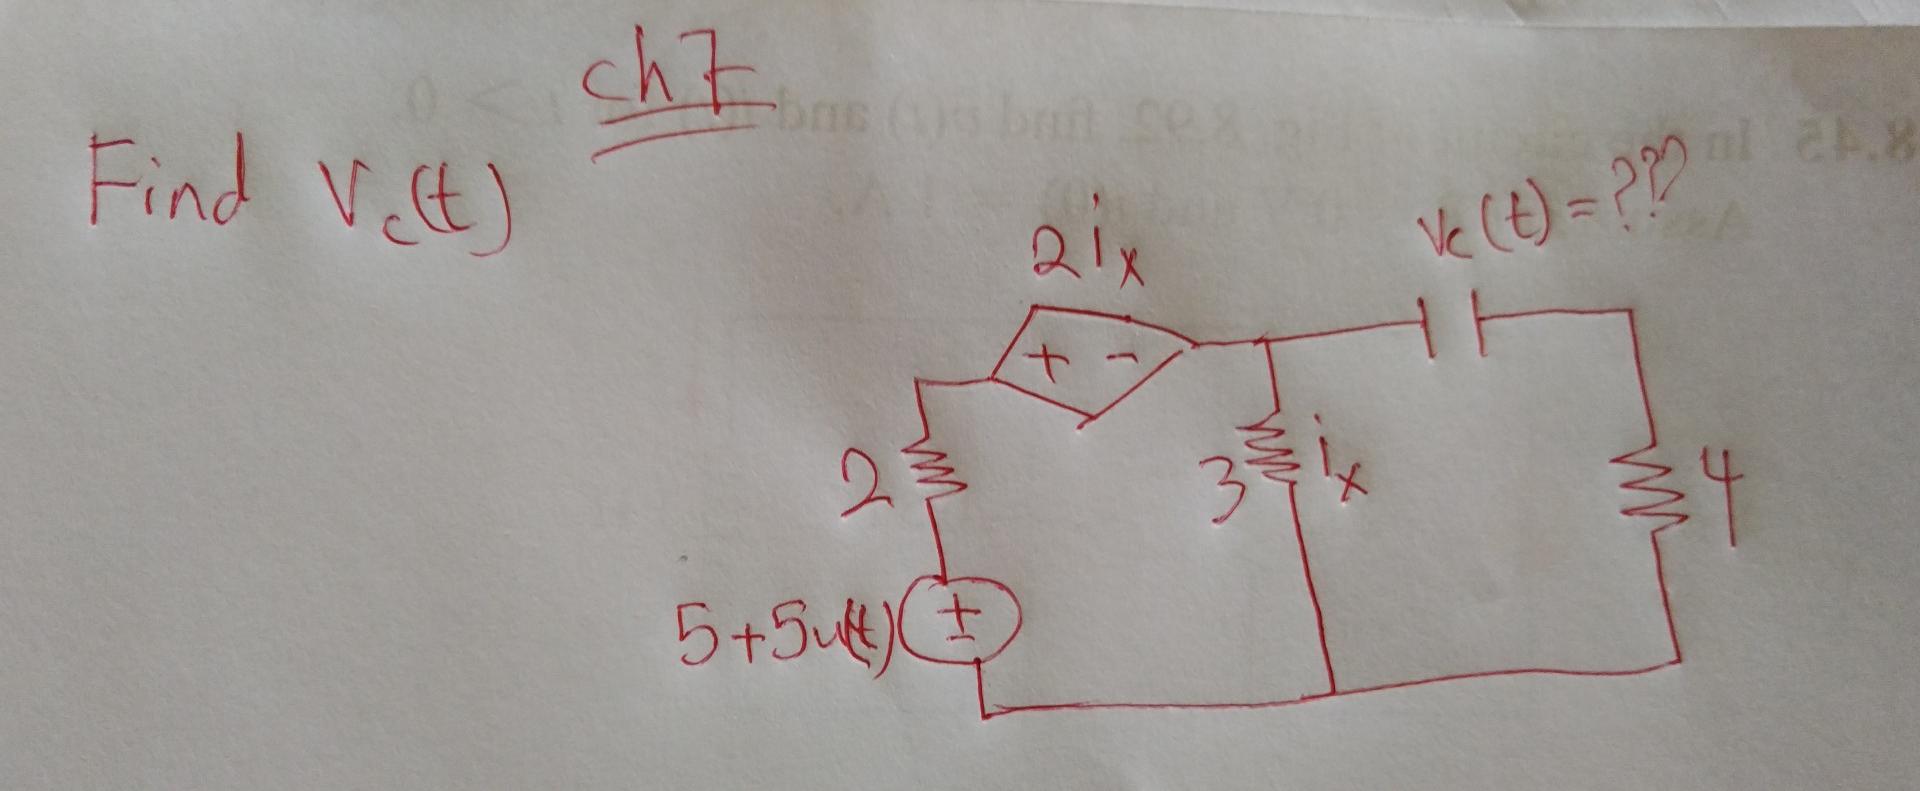 ch7
Find Vc(t)
2ix
Vc(t)=???
+ -
2
3
ix
4
5+5u(t)
+
-